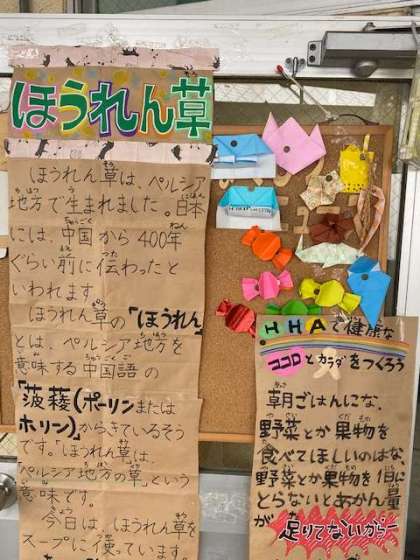 ほうれん草
ほうれん草は、ペルシア
地方で生まれました。日本
には、中国から400年
ぐらい前に伝わったと
いわれます。
ほうれん草の「ほうれん」
とは、ペルシア地方を
意味する中国語の
「菠薐(ポーリンまたは
ホリン)」からきているそう
です。「ほうれん草は、
ペルシア地方の草」という
意味です。
今日は、ほうれん草を
スープに使っています。
HHAで健康な
ココロとカラダをつくろう
朝ごはんにな、
野菜とか果物を
食べてほしいのはな、
野菜とか果物を1日に
とらないとあかん量
が足りてないからー